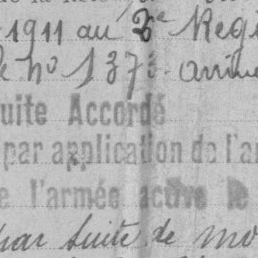 1911 au 2e Regi
le no 137 arriv
uite Accordé
par application de l'ar
e l'armée active le
par suite de mo